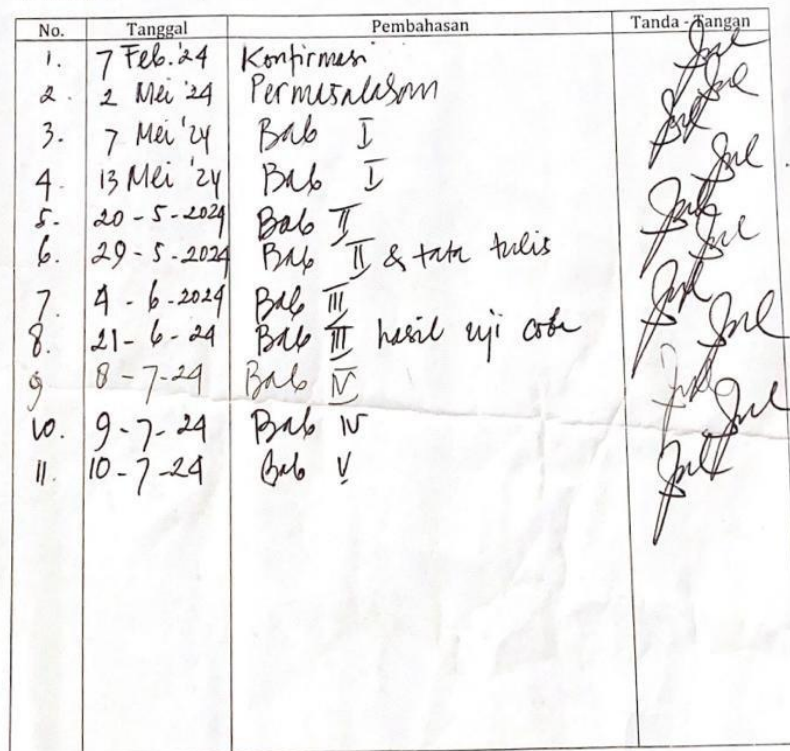 No. Tanggal Pembahasan Tanda - Tangan
1. 7 Feb. '24 Konfirmasi
2. 2 Mei '24 Permasalahan
3. 7 Mei '24 Bab I
4. 13 Mei '24 Bab I
5. 20 - 5 - 2024 Bab II
6. 29 - 5 - 2024 Bab II & tata tulis
7. 4 - 6 - 2024 Bab III
8. 21 - 6 - 24 Bab III hasil uji coba
9 8 - 7 - 24 Bab IV
10. 9 - 7 - 24 Bab IV
11. 10 - 7 - 24 Bab V